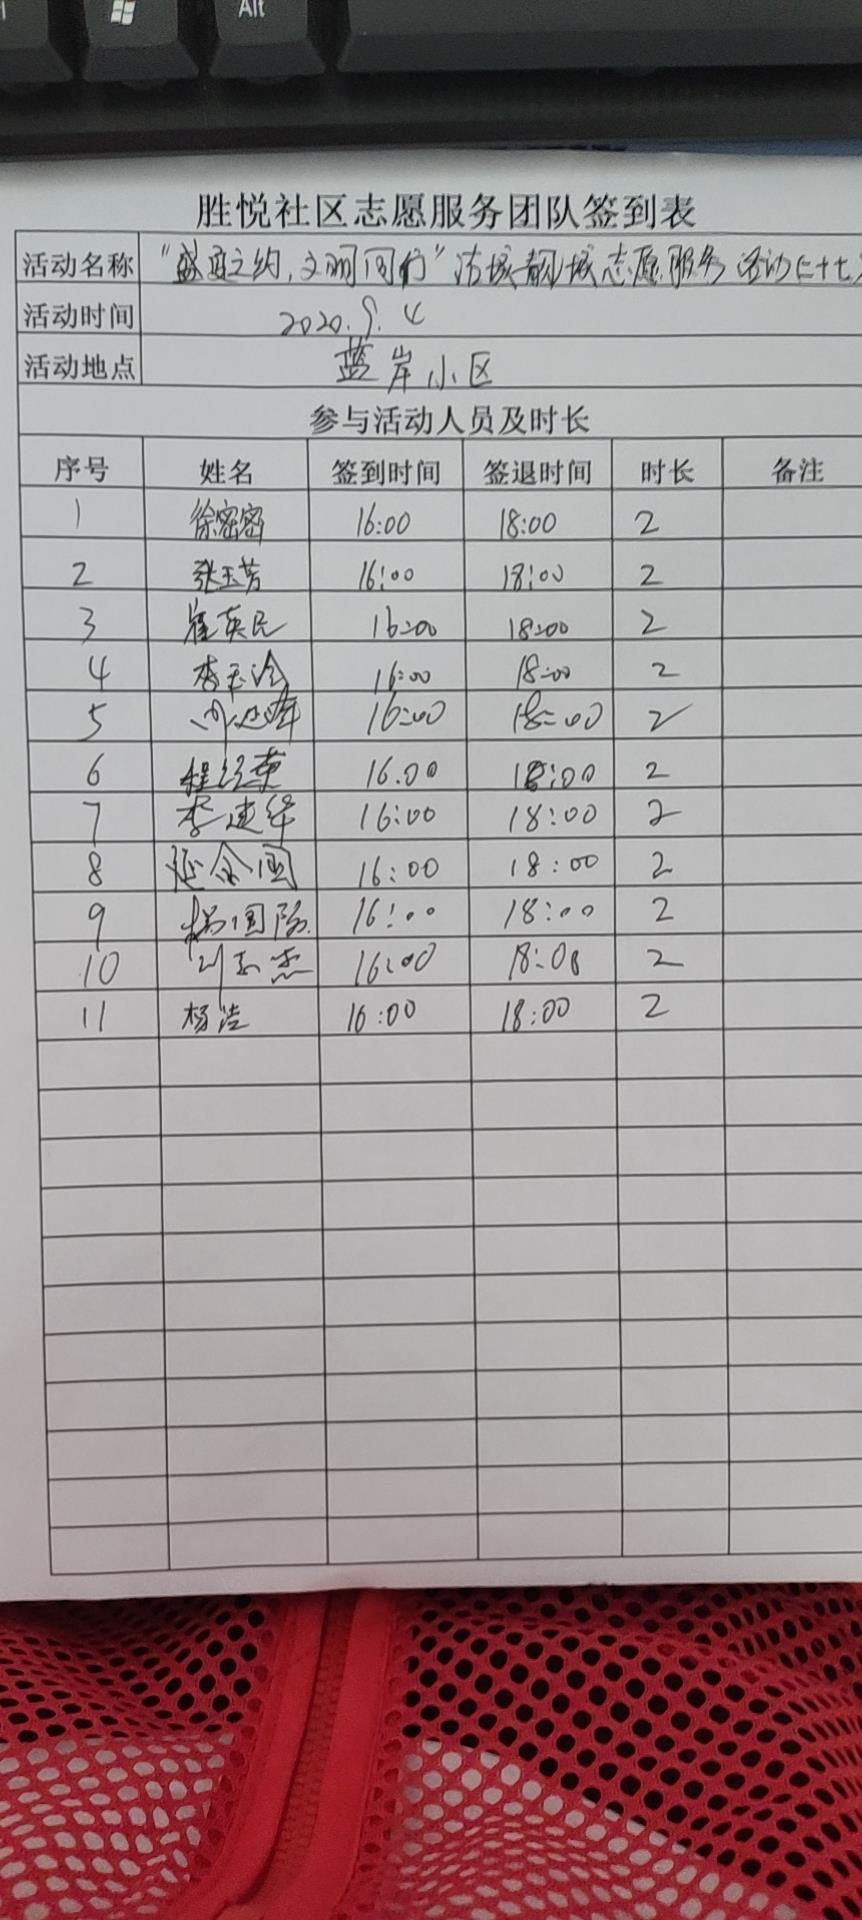 Alt
胜悦社区志愿服务团队签到表
活动名称 "盛夏之约,文明同行"洁城靓城志愿服务活动(二十七
活动时间 2020.9.4
活动地点 蓝岸小区
参与活动人员及时长
序号 姓名 签到时间 签退时间 时长 备注
1 徐密密 16:00 18:00 2
2 张玉芳 16:00 18:00 2
3 崔英民 16:00 18:00 2
4 李玉 16:00 18:00 2
5 16:00 18:00 2
6 程 16.00 18:00 2
7 李建华 16:00 18:00 2
8 16:00 18:00 2
9 杨国防 16:00 18:00 2
10 16:00 18:00 2
11 杨洁 16:00 18:00 2